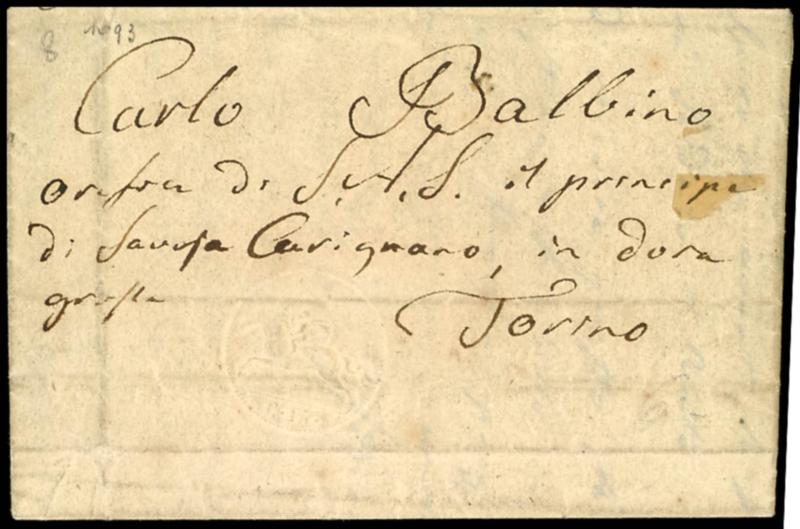 8 1093
Carlo Balbino
orefice di S. A. S. il principe
di Savoja Carignano, in dora
grossa
Torino